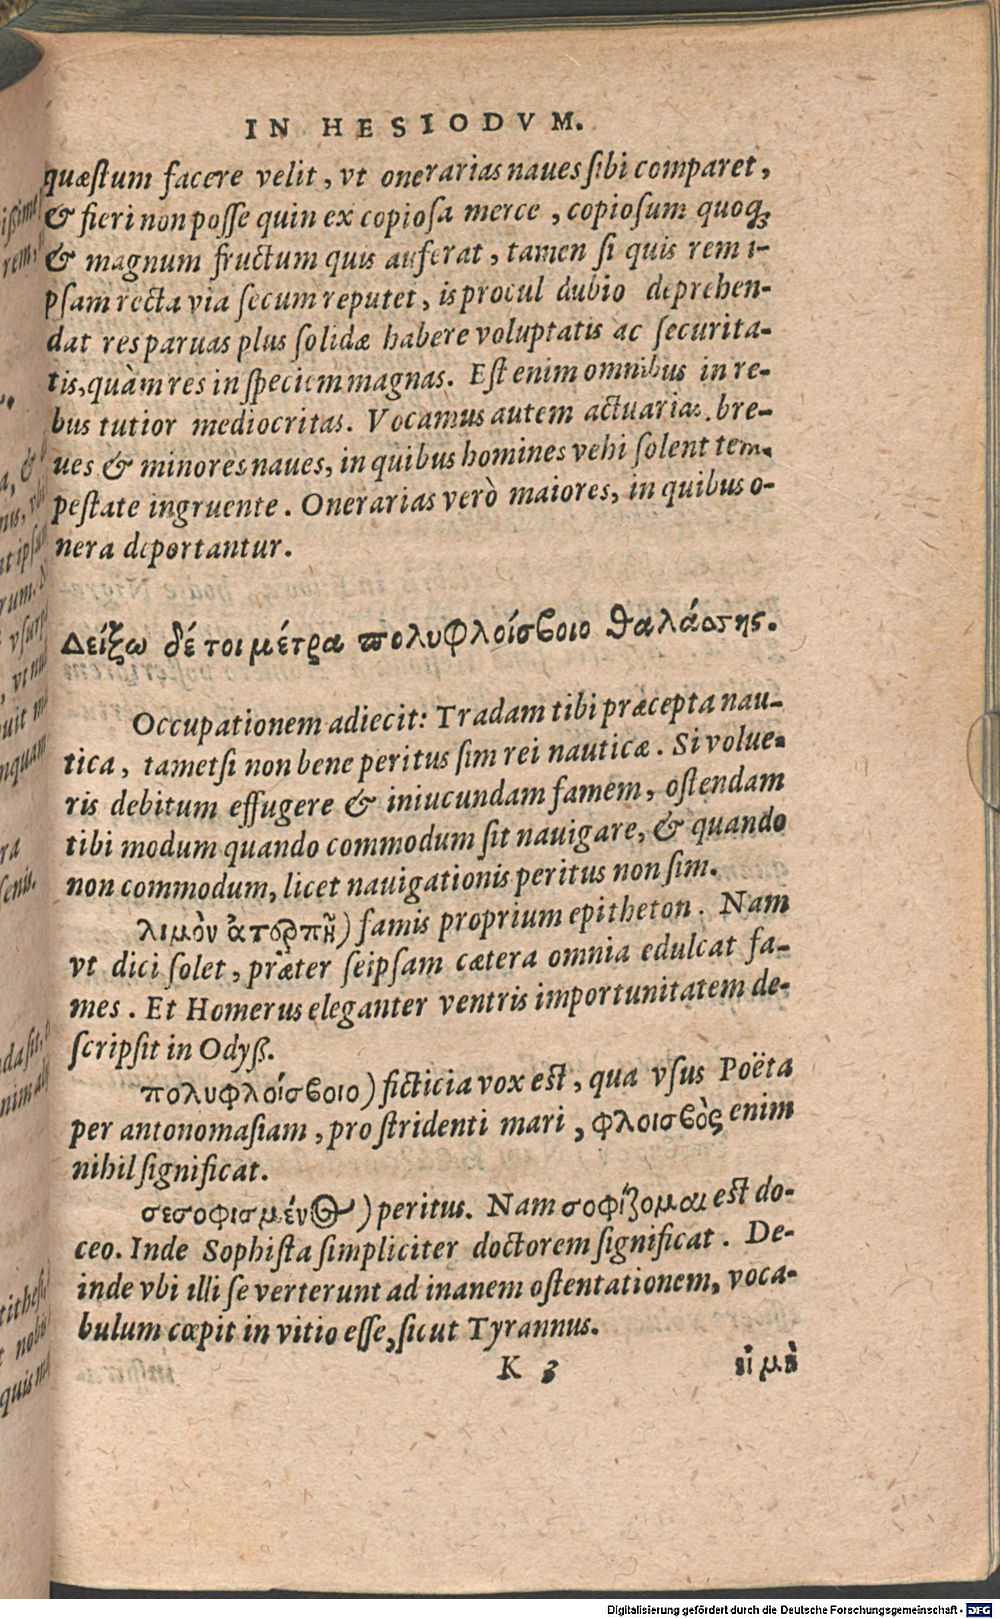 IN HESIODVM.
quæstum facere velit, vt onerarias naues sibi comparet,
& fieri non posse quin ex copiosa merce, copiosum quoq;
& magnum fructum quis auferat, tamen si quis rem i-
psam recta via secum reputet, is procul dubio deprehen-
dat res paruas plus solidæ habere voluptatis ac securita-
tis, quàm res in speciem magnas. Est enim omnibus in re-
bus tutior mediocritas. Vocamus autem actuarias bre-
ues & minores naues, in quibus homines vehi solent tem-
pestate ingruente. Onerarias verò maiores, in quibus o-
nera deportantur.
Δείξω δέ τοι μέτρα πολυφλοίσβοιο θαλάσσης.
Occupationem adiecit: Tradam tibi præcepta nau-
tica, tametsi non bene peritus sim rei nauticæ. Si volue-
ris debitum effugere & iniucundam famem, ostendam
tibi modum quando commodum sit nauigare, & quando
non commodum, licet nauigationis peritus non sim.
λιμὸν ἀτερπῆ) famis proprium epitheton. Nam
vt dici solet, præter seipsam cætera omnia edulcat fa-
mes. Et Homerus eleganter ventris importunitatem de-
scripsit in Odyß.
πολυφλοίσβοιο) ficticia vox est, qua vsus Poëta
per antonomasiam, pro stridenti mari, φλοισβὸς enim
nihil significat.
σεσοφισμένος) peritus. Nam σοφίζομαι est do-
ceo. Inde Sophista simpliciter doctorem significat. De-
inde vbi illi se verterunt ad inanem ostentationem, voca-
bulum cœpit in vitio esse, sicut Tyrannus.
K 3 εἰ μὲ
Digitalisierung gefördert durch die Deutsche Forschungsgemeinschaft - DFG